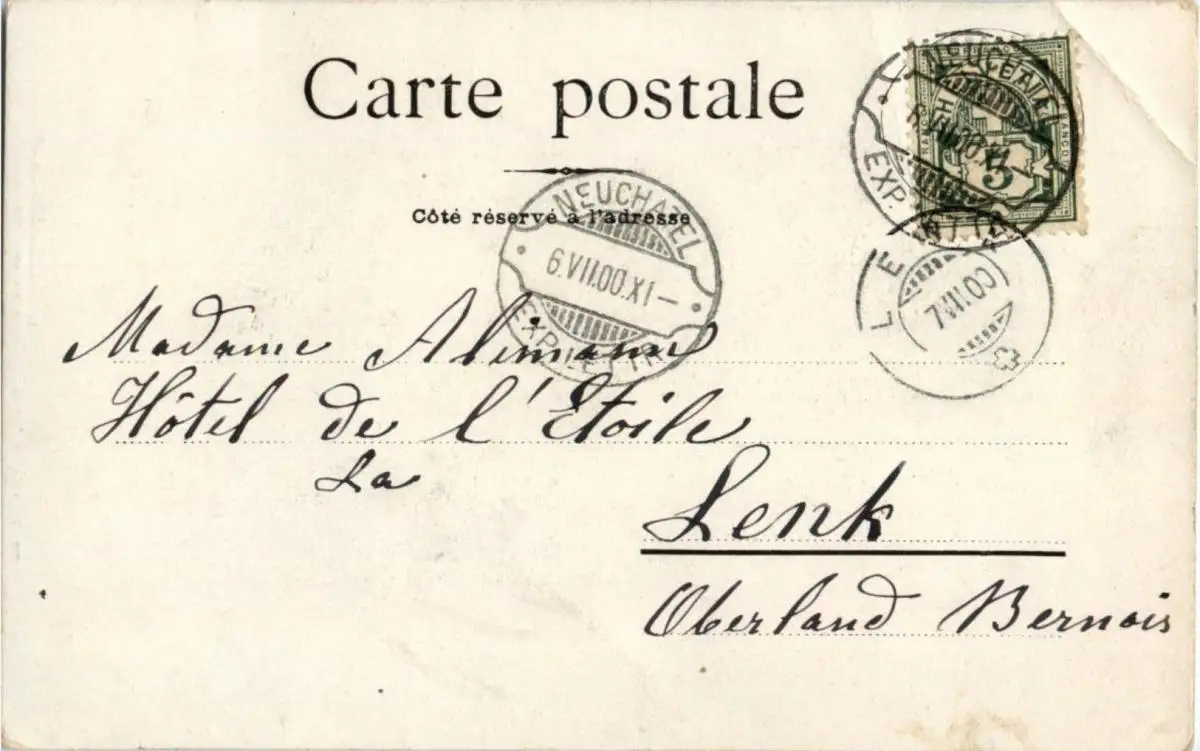 Carte postale
Côté réservé à l'adresse
NEUCHATEL
6.VII.00.XI—
EXP. LETTR.
NEUCHATEL
6.VII.00.XI—
EXP. LETTR.
5
LENK
7.VII.00
Madame Alimann
Hôtel de l'Etoile
La
Lenk
Oberland Bernois